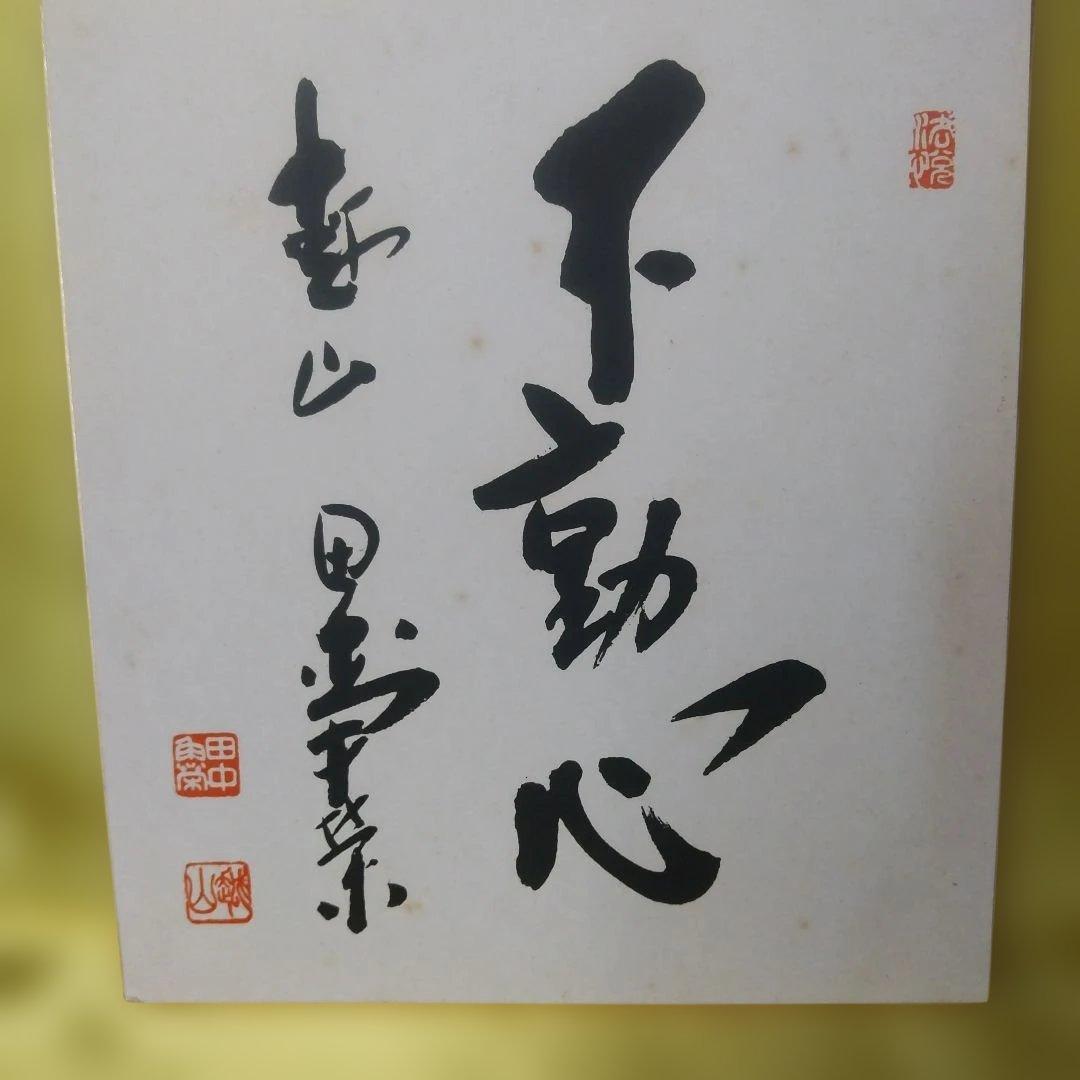 不動心
越山 田中角榮
田中角榮
越山